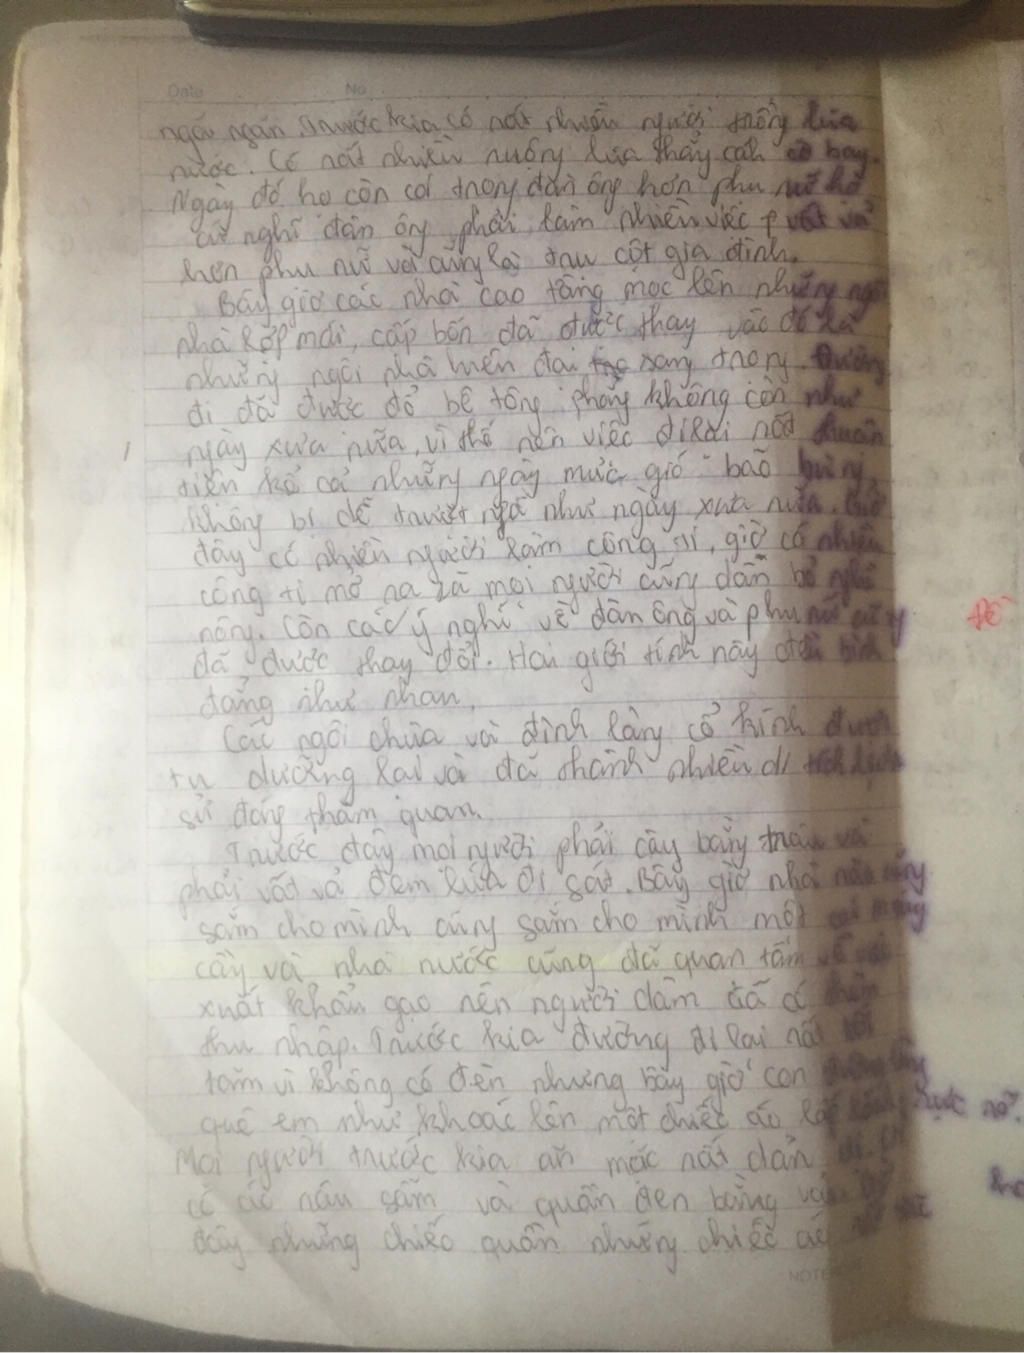 Date No
ngán ngán. Trước kia có rất nhiều người trồng lúa
nước. Có rất nhiều ruộng lúa thẳng cánh cò bay.
Ngày đó họ còn coi trọng đàn ông hơn phụ nữ họ
cứ nghĩ đàn ông phải làm nhiều việc vất vả
hơn phụ nữ và cũng là trụ cột gia đình.
Bây giờ các nhà cao tầng mọc lên những ngôi
nhà lợp mái, cấp bốn đã được thay vào đó là
những ngôi nhà hiện đại sang trọng. Đường
đi đã được đổ bê tông phẳng không còn như
ngày xưa nữa, vì thế nên việc đi lại rất thuận
tiện kể cả những ngày mưa gió bão bùng,
không bị dễ trượt ngã như ngày xưa nữa. Giờ
đây có nhiều người làm công ti, giờ có nhiều
công ti mở ra và mọi người cũng dần bỏ nghề
nông. Còn các ý nghĩ về đàn ông và phụ nữ cũng
đã được thay đổi. Hai giới tính này đều bình
đẳng như nhau.
Các ngôi chùa và đình làng cổ kính được
tu dưỡng lại và đã thành nhiều di tích lịch
sử đáng thăm quan.
Trước đây mọi người phải cày bằng trâu và
phải vất vả đem lúa đi sát. Bây giờ nhà nào cũng
sắm cho mình cũng sắm cho mình một cái máy
cày và nhà nước cũng đã quan tâm về việc
xuất khẩu gạo nên người dân đã có thêm
thu nhập. Trước kia đường đi lại rất tối
tăm vì không có đèn nhưng bây giờ con đường làng
quê em như khoác lên một chiếc áo lấp lánh, rực rỡ.
Mọi người trước kia ăn mặc rất dản dị. Chỉ
có áo nâu sẫm và quần đen bằng vải. Giờ
đây những chiếc quần những chiếc áo